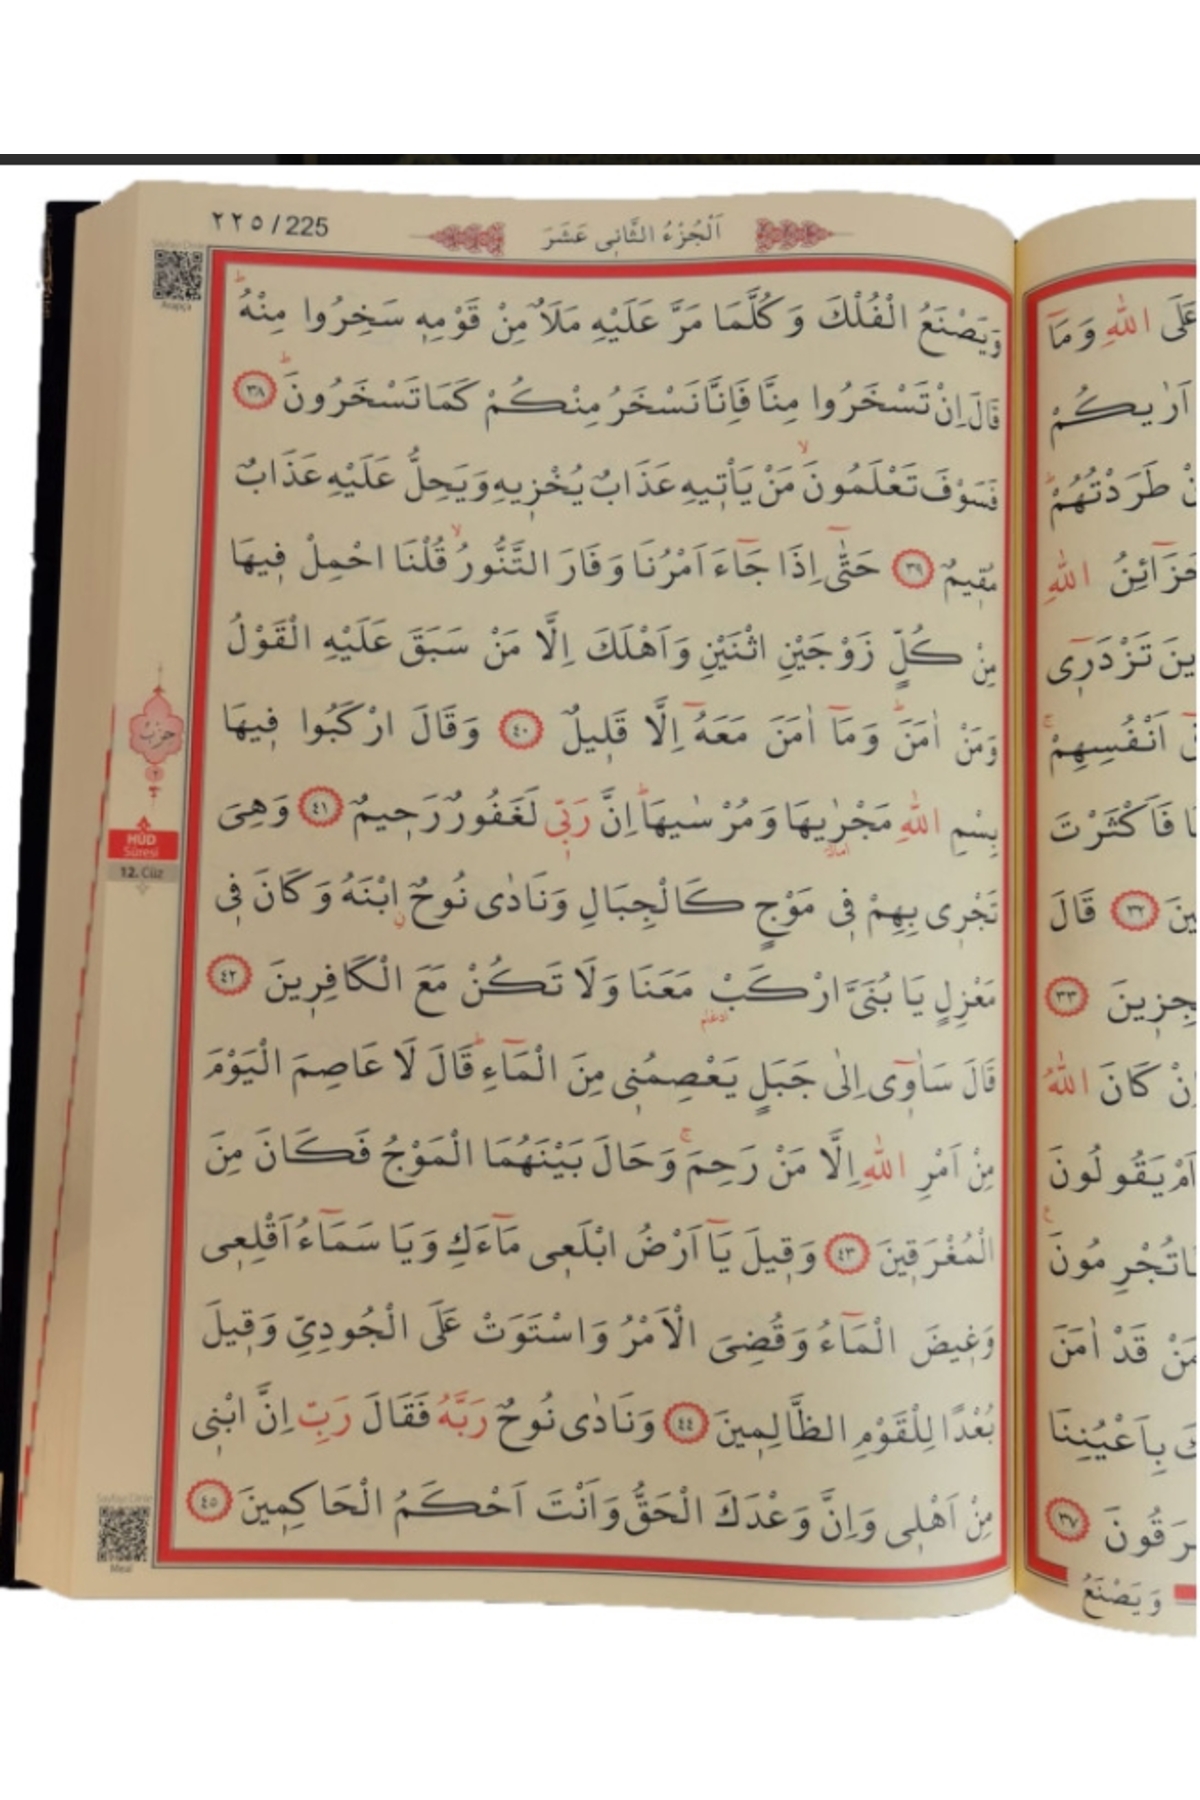 ٢٢٥ / 225
اَلْجُزْءُ الثَّانِى عَشَرَ
وَيَصْنَعُ الْفُلْكَ وَكُلَّمَا مَرَّ عَلَيْهِ مَلَاٌ مِنْ قَوْمِهِ سَخِرُوا مِنْهُۜ
قَالَ اِنْ تَسْخَرُوا مِنَّا فَاِنَّا نَسْخَرُ مِنْكُمْ كَمَا تَسْخَرُونَۜ ٣٨
فَسَوْفَ تَعْلَمُونَۙ مَنْ يَأْتِيهِ عَذَابٌ يُخْزِيهِ وَيَحِلُّ عَلَيْهِ عَذَابٌ
مُقِيمٌ ٣٩ حَتّٰٓى اِذَا جَٓاءَ اَمْرُنَا وَفَارَ التَّنُّورُۙ قُلْنَا احْمِلْ فِيهَا
مِنْ كُلٍّ زَوْجَيْنِ اثْنَيْنِ وَاَهْلَكَ اِلَّا مَنْ سَبَقَ عَلَيْهِ الْقَوْلُ
وَمَنْ اٰمَنَۜ وَمَٓا اٰمَنَ مَعَهُٓ اِلَّا قَلِيلٌ ٤٠ وَقَالَ ارْكَبُوا فِيهَا
بِسْمِ اللّٰهِ مَجْرٰۭيهَا وَمُرْسٰيهَاۜ اِنَّ رَبِّى لَغَفُورٌ رَحِيمٌ ٤١ وَهِىَ
تَجْرِى بِهِمْ فِى مَوْجٍ كَالْجِبَالِ وَنَادٰى نُوحٌۨ ابْنَهُ وَكَانَ فِى
مَعْزِلٍ يَا بُنَىَّ ارْكَبْ مَعَنَا وَلَا تَكُنْ مَعَ الْكَافِرِينَ ٤٢
قَالَ سَاٰوِٓى اِلٰى جَبَلٍ يَعْصِمُنِى مِنَ الْمَٓاءِۜ قَالَ لَا عَاصِمَ الْيَوْمَ
مِنْ اَمْرِ اللّٰهِ اِلَّا مَنْ رَحِمَۚ وَحَالَ بَيْنَهُمَا الْمَوْجُ فَكَانَ مِنَ
الْمُغْرَقِينَ ٤٣ وَقِيلَ يَٓا اَرْضُ ابْلَعِى مَٓاءَكِ وَيَا سَمَٓاءُ اَقْلِعِى
وَغِيضَ الْمَٓاءُ وَقُضِىَ الْاَمْرُ وَاسْتَوَتْ عَلَى الْجُودِىِّ وَقِيلَ
بُعْدًا لِلْقَوْمِ الظَّالِمِينَ ٤٤ وَنَادٰى نُوحٌ رَبَّهُ فَقَالَ رَبِّ اِنَّ ابْنِى
مِنْ اَهْلِى وَاِنَّ وَعْدَكَ الْحَقُّ وَاَنْتَ اَحْكَمُ الْحَاكِمِينَ ٤٥
Sayfayı Dinle
Arapça
حزب
٢
HÛD
Sûresi
12. Cüz
Sayfayı Dinle
Meal
عَلَى اللّٰهِ وَمَٓا
اَرٰيكُمْ
طَرَدْتُهُمْۜ
خَزَٓائِنُ اللّٰهِ
تَزْدَرِٓى
اَنْفُسِهِمْۚ
فَاَكْثَرْتَ
٣٢ قَالَ
٣٣
كَانَ اللّٰهُ
اَمْ يَقُولُونَ
تُجْرِمُونَ
قَدْ اٰمَنَ
بِاَعْيُنِنَا
٣٧
وَيَصْنَعُ